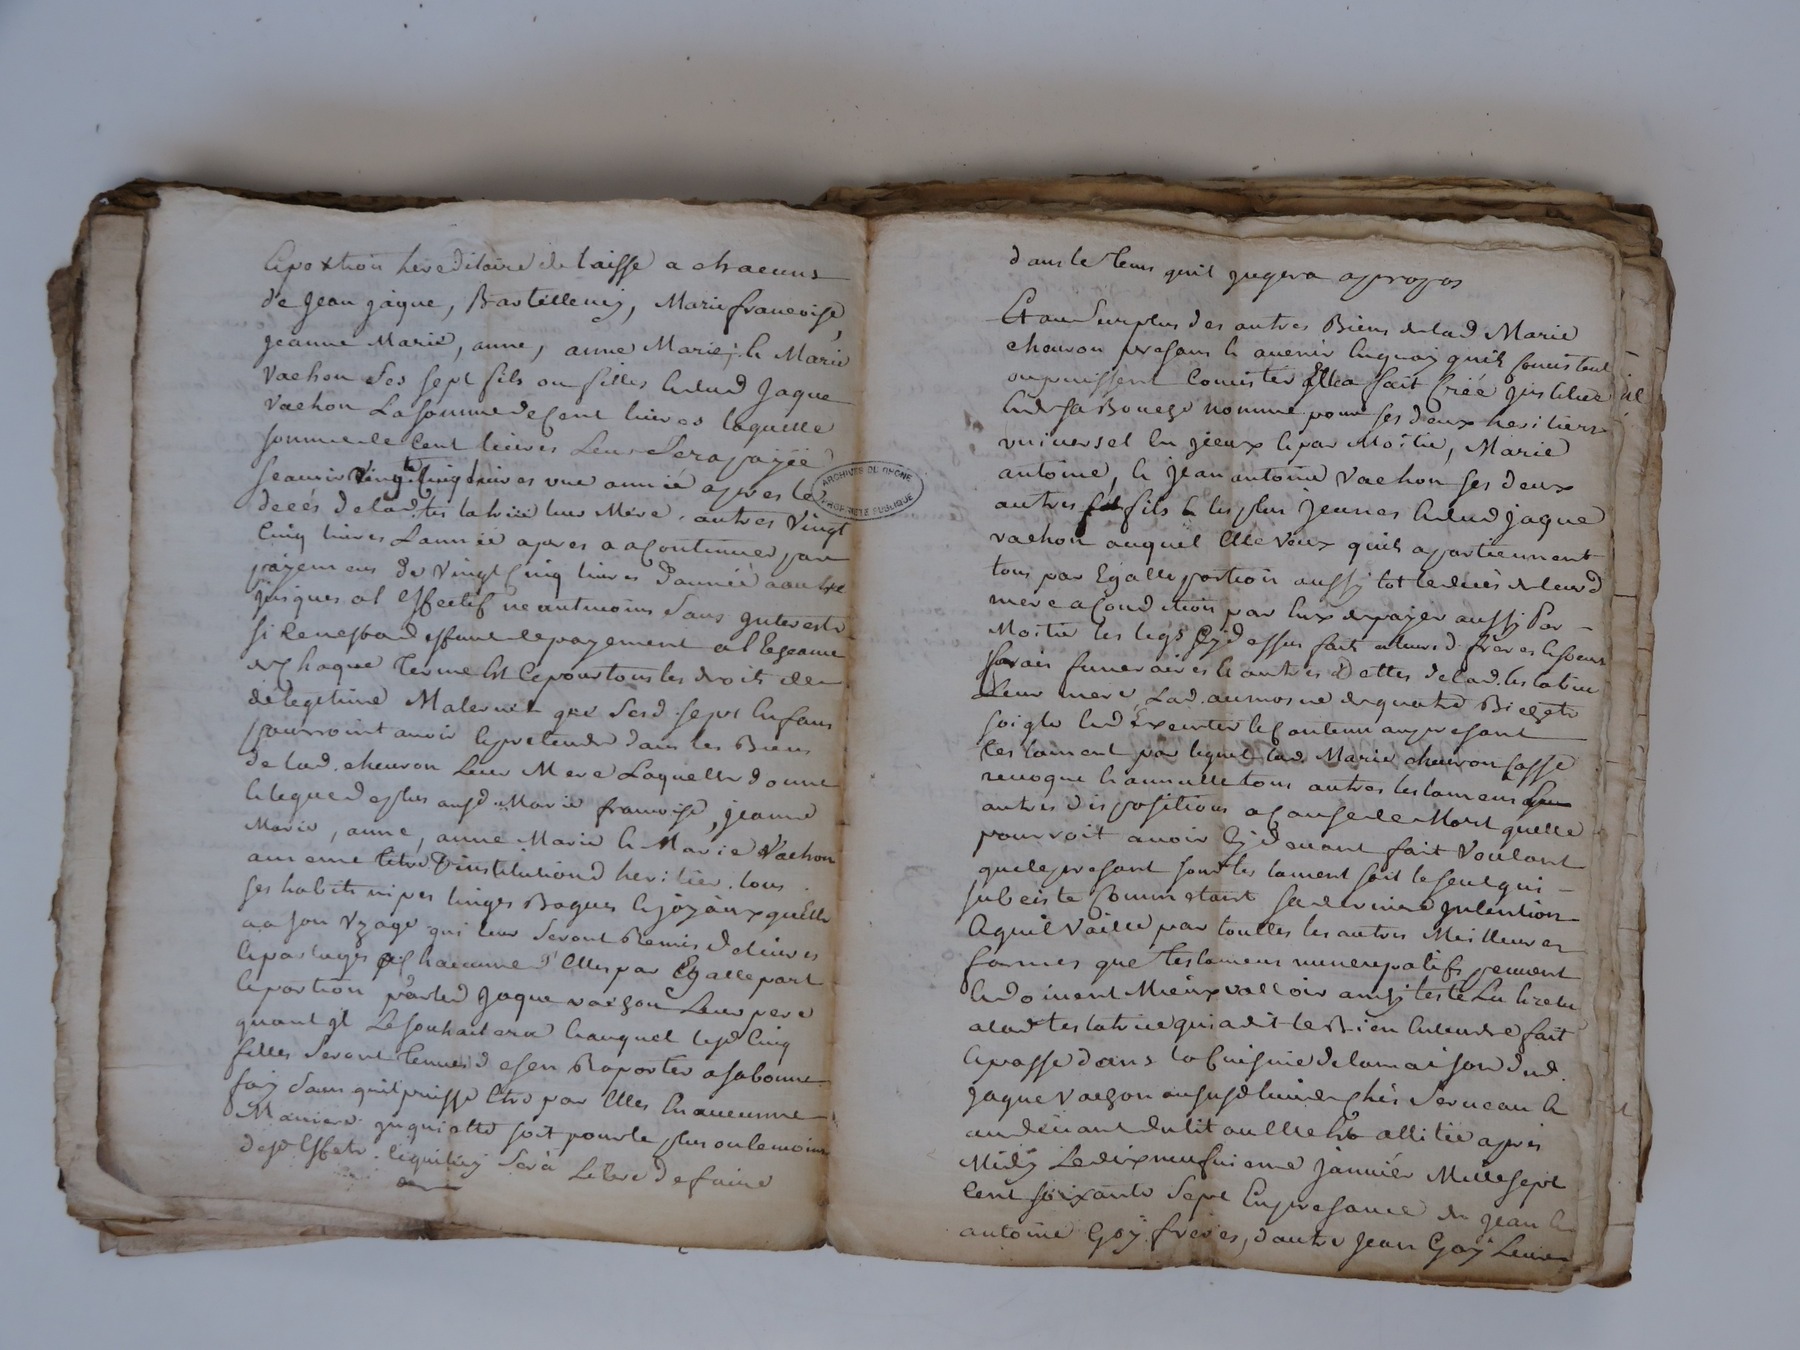 et portion hereditaire de laisse a chacuns
de Jean jaque, Bartellemy, Marie francoise,
jeanne Marie, anne, anne Marie, et Marie
Vachon ses sept fils ou filles et dud Jaque
Vachon La somme de Cent livres laquelle
somme de Cent livres Leur sera payée
scavoir vingt Cinq livres une année apres le
decés de lad. testatrice leur Mere. autres Vingt
Cinq livres L'année apres a a Continuer par
payemens de Vingt Cinq livres d'année a autre
jusques a l'effectif neantmoins sans interests
si ce nest a deffaut de payement a l'Egeance
de Chaque terme Et Ce pour tous les droits de
de legitime Maternel que sesd. sept Enfans
pourroint avoir et pretendre dans les Biens
de lad. chevron Leur Mere Laquelle donne
et legue de plus ausd. Marie françoise, jeanne
Marie, anne, anne Marie et Marie Vachon
au meme titre D'institution d'heritier. tous
ses habits nipes linges Bagues et joyaux quelle
a a son Uzage qui leur seront Remis Delivres
et partagés a Chacunne D'Elles par Egalle part
et portion par led Jaque vachon Leur pere
quant il Le souhaitera Cauquel lesd. Cinq
filles seront tenues de sen Raporter a sa bonne
foy sans quil puisse Etre par Elles En aucunne
Maniere inquietté soit pour le plus ou le moins
desd. Effets. liquitay sera Libre de faire
ARCHIVES DU RHONE
PROPRIETE PUBLIQUE
dans le tems quil jugera apropos
Et au surplus des autres Biens de lad Marie
chevron presans et avenir En quoy quils Consistent
ou puissent Consister Elle a fait Créé Institué
et de sa Bouche nommé pour ses deux heritiers
universel En jceux et par Moitié, Marie
antoine, et jean antoine Vachon ses deux
autres fils et les plus jeunes et dud jaque
vachon auquel Elle veux quils apartiennent
tous par Egalle portion aussy tot le decés de leurd
mere a Condition par Eux de payer aussy Par
Moitié les legs Cy dessus fait a leursd. freres et soeurs
frais funeraires et autres Dettes de lad. testatrice
Leur mere, Lad. aumosne de quatre Bichets
soigle et d'Executer le Contenu au presant
testament par lequel lad Marie chevron Casse
revoque et annulle tous autres testamens
autres dispositions a Cause de Mort quelle
pourroit avoir Cy devant fait Voulant
que le presant sont testament soit le seul qui
subciste Comme etant sa derniere intention
Et quil Vaille par touttes les autres Meilleures
formes que testamens nuncupatifs peuvent
et doivent Mieux valloir ainsy testé Lu et relu
a lad testatrice qui a dit le Bien Entendre fait
et passé dans la Cuisine de lamaison dud.
jaque vachon
au devant du lit ou Elle Est allitée apres
Midy Le dix neufvieme janvier Mille sept
Cent soixante sept En presance de jean et
antoine Goy freres, dautre jean Goy Leur